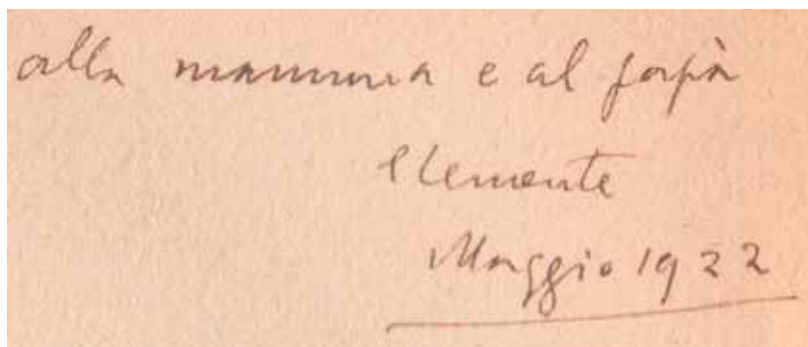 alla mamma e al papà
Clemente
Maggio 1922